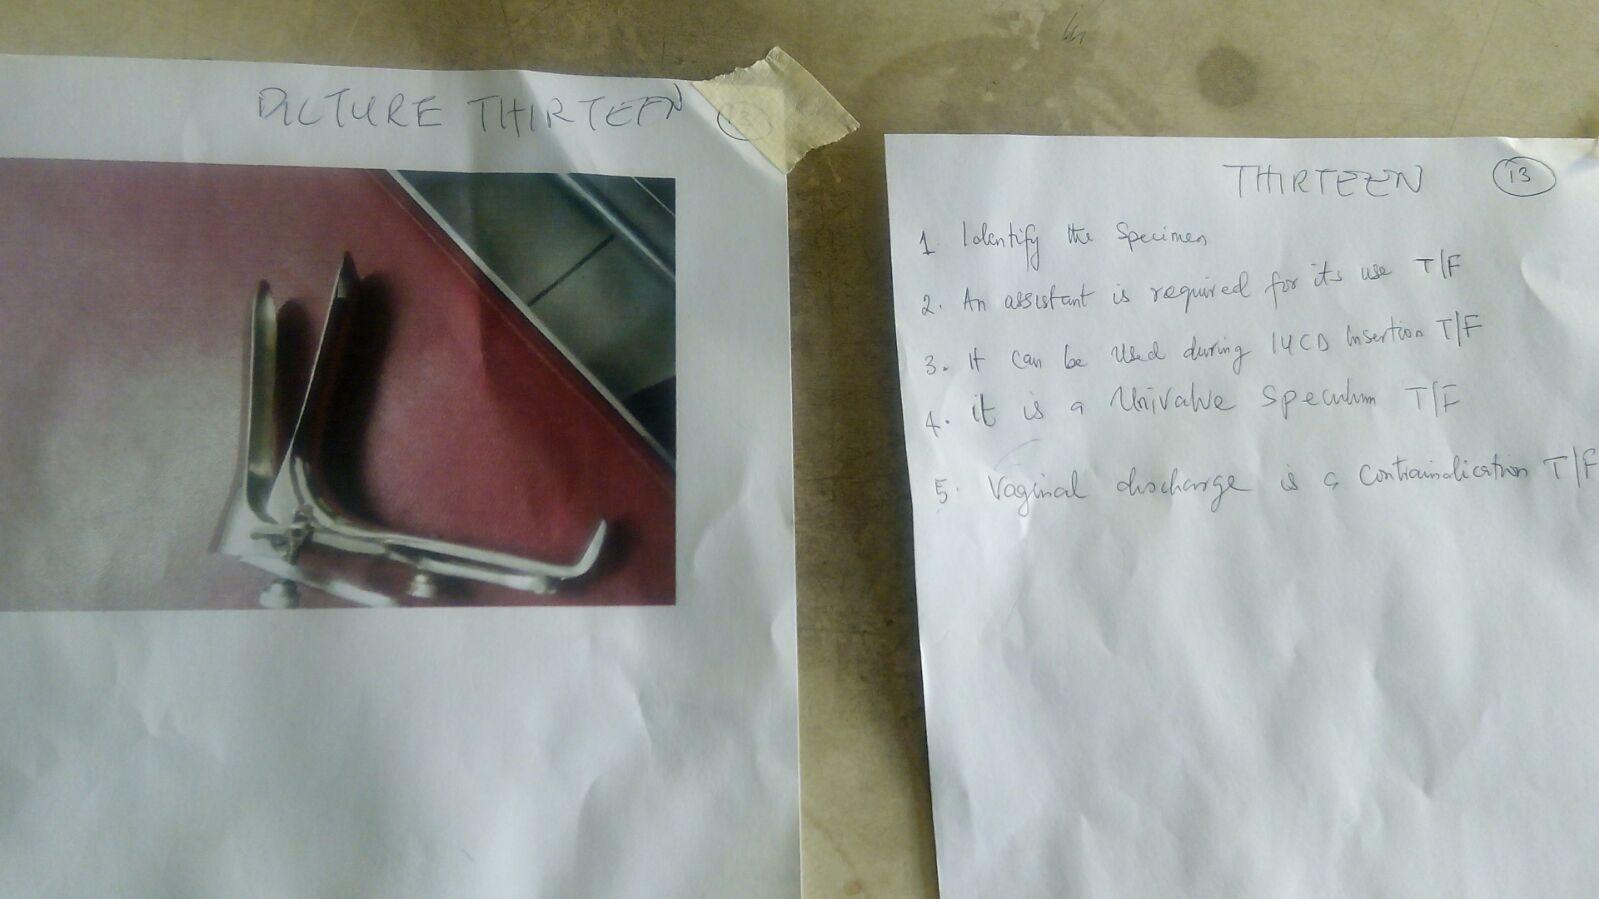 PICTURE THIRTEEN 13
THIRTEEN 13
1 Identify the Specimen
2. An assistant is required for its use T/F
3. It can be used during IUCD Insertion T/F
4. it is a Univalve Speculum T/F
5. Vaginal discharge is a Contraindication T/F